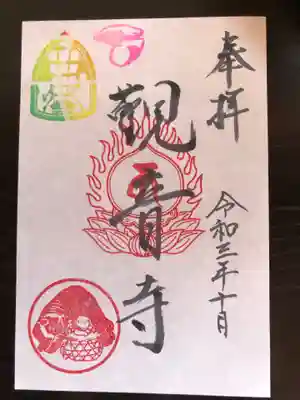 奉拝
令和三年十月
観音寺